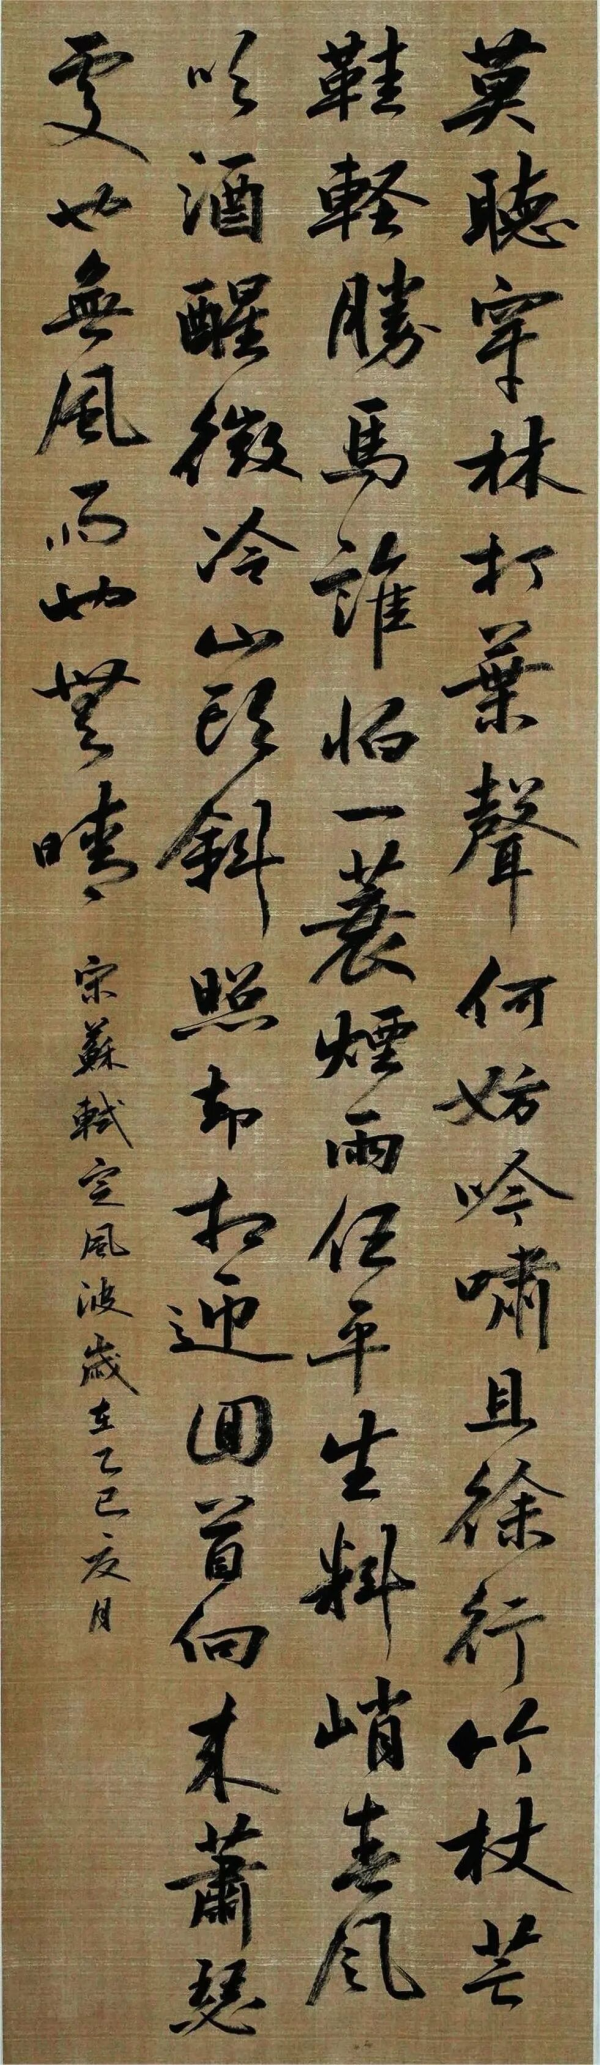 莫聴穿林打葉聲何妨吟嘯且徐行竹杖芒
鞋軽勝馬誰怕一蓑煙雨任平生料峭春風
吹酒醒微冷山頭斜照却相迎回首向来蕭瑟
處也無風雨也無晴
宋蘇軾定風波歲在乙巳夏月